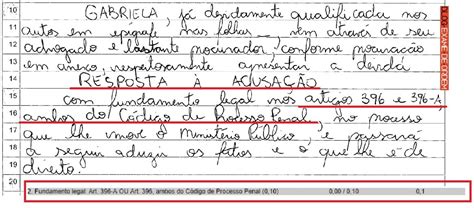 10 GABRIELA, já devidamente qualificada nos
11 autos em epígrafe, nas folhas __, vem através de seu
12 advogado e bastante procurador, conforme procuração
13 em anexo, respeitosamente apresentar a devida
14 RESPOSTA À ACUSAÇÃO
15 com fundamento legal nos artigos 396 e 396-A
16 ambos do Código de Processo Penal, no processo
17 que lhe move o Ministério Público, e passará
18 a seguir aduzir os fatos e o que lhe é de
19 direito.
20
2. Fundamento legal: Art. 396-A OU Art. 396, ambos do Código de Processo Penal (0,10) 0,00 / 0,10 0,1
EXAME DE ORDEM